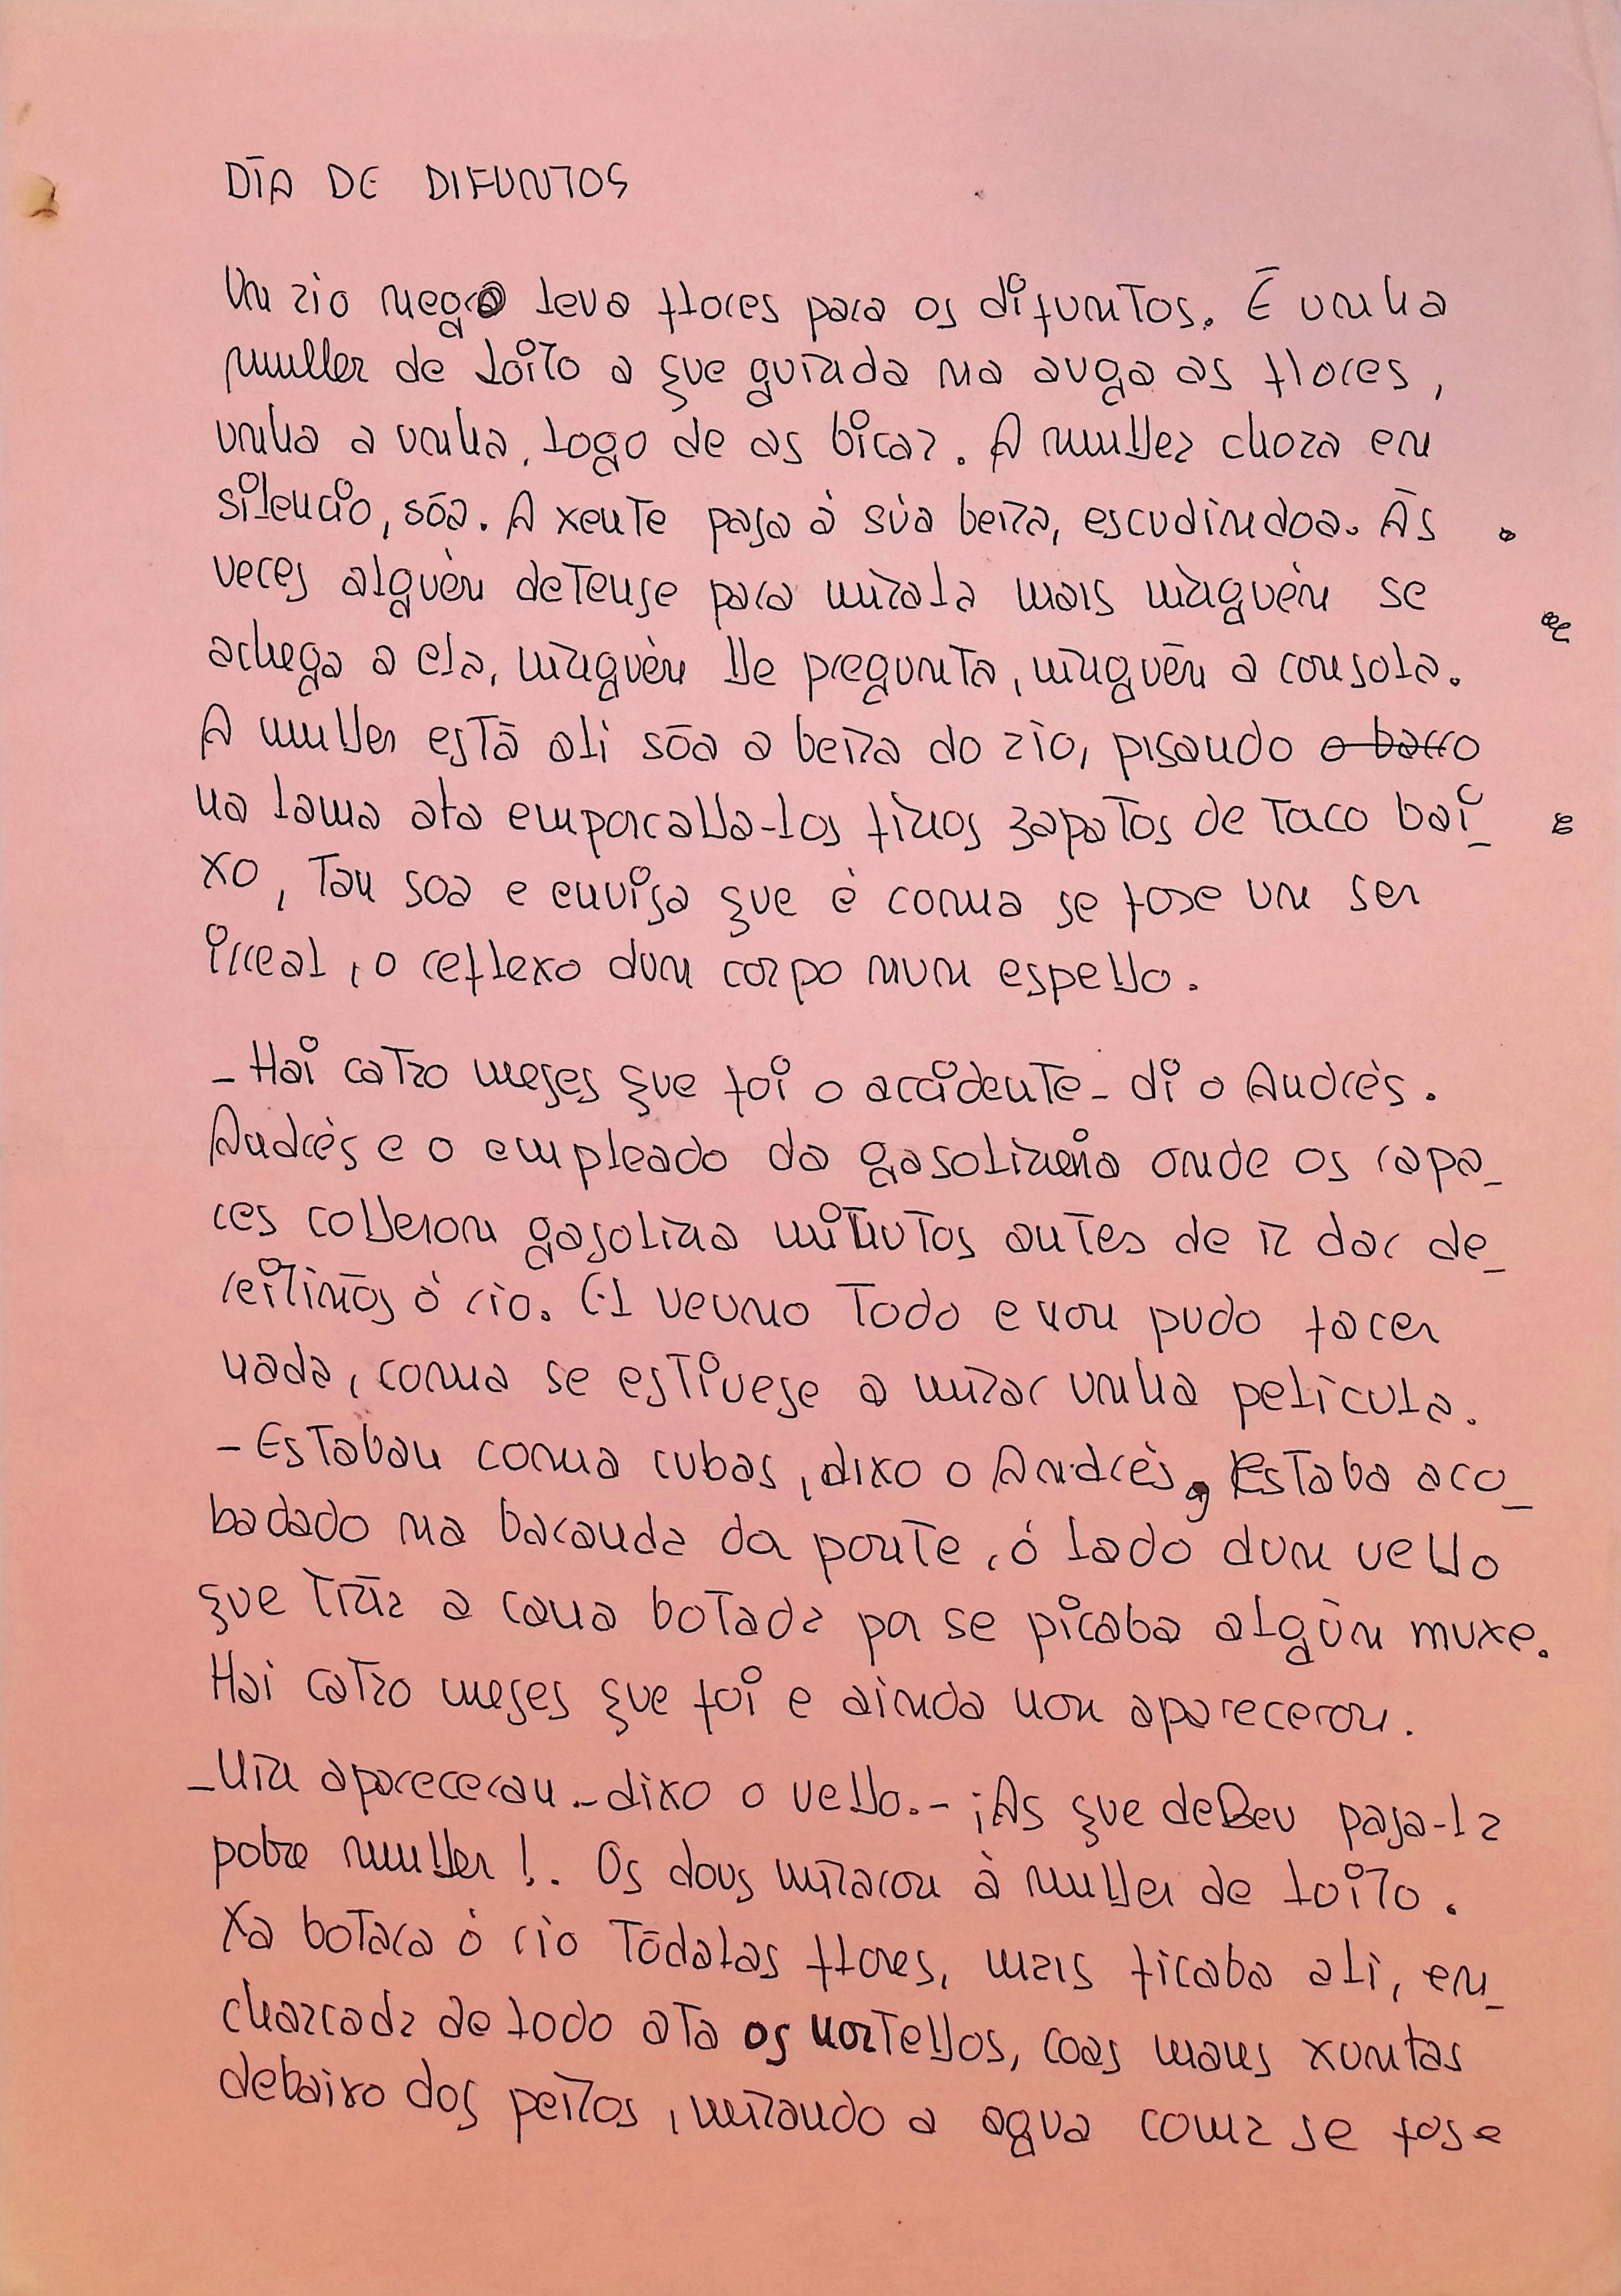 DÍA DE DIFUNTOS
Un río negro leva flores para os difuntos. É unha
muller de loito a que guinda na auga as flores,
unha a unha, logo de as bicar. A muller chora en
silencio, sóa. A xente pasa á súa beira, escudiñdoa. Ás
veces alguén detense para mirala mais ninguén se
achega a ela, ninguén lle pregunta, ninguén a consola.
A muller está alí sóa a beira do río, pisando o barro
na lama ata emporcalla-los finos zapatos de taco bai_
xo, tan soa e envisa que é coma se fose un ser
irreal, o reflexo dun corpo nun espello.
_Hai catro meses que foi o accidente_ di o Andrés.
Andrés e o empleado da gasoliñeira onde os rapa_
ces colleron gasolina minutos antes de ir dar de_
reitiños ó río. El veuno todo e non pudo facer
nada, coma se estivese a mirar unha película.
-Estaban coma cubas, dixo o Andrés, Estaba aco_
badado na baranda da ponte, ó lado dun vello
que tiña a cana botada por se picaba algún muxe.
Hai catro meses que foi e aínda non apareceron.
_Nin aparecerán._dixo o vello.- ¡As que deben pasa-la
pobre muller!. Os dous miraron á muller de loito.
Xa botara ó río tódalas flores, mais ficaba alí, en_
charcada de lodo ata os nortellos, coas mans xuntas
debaixo dos peitos, mirando a agua coma se fose